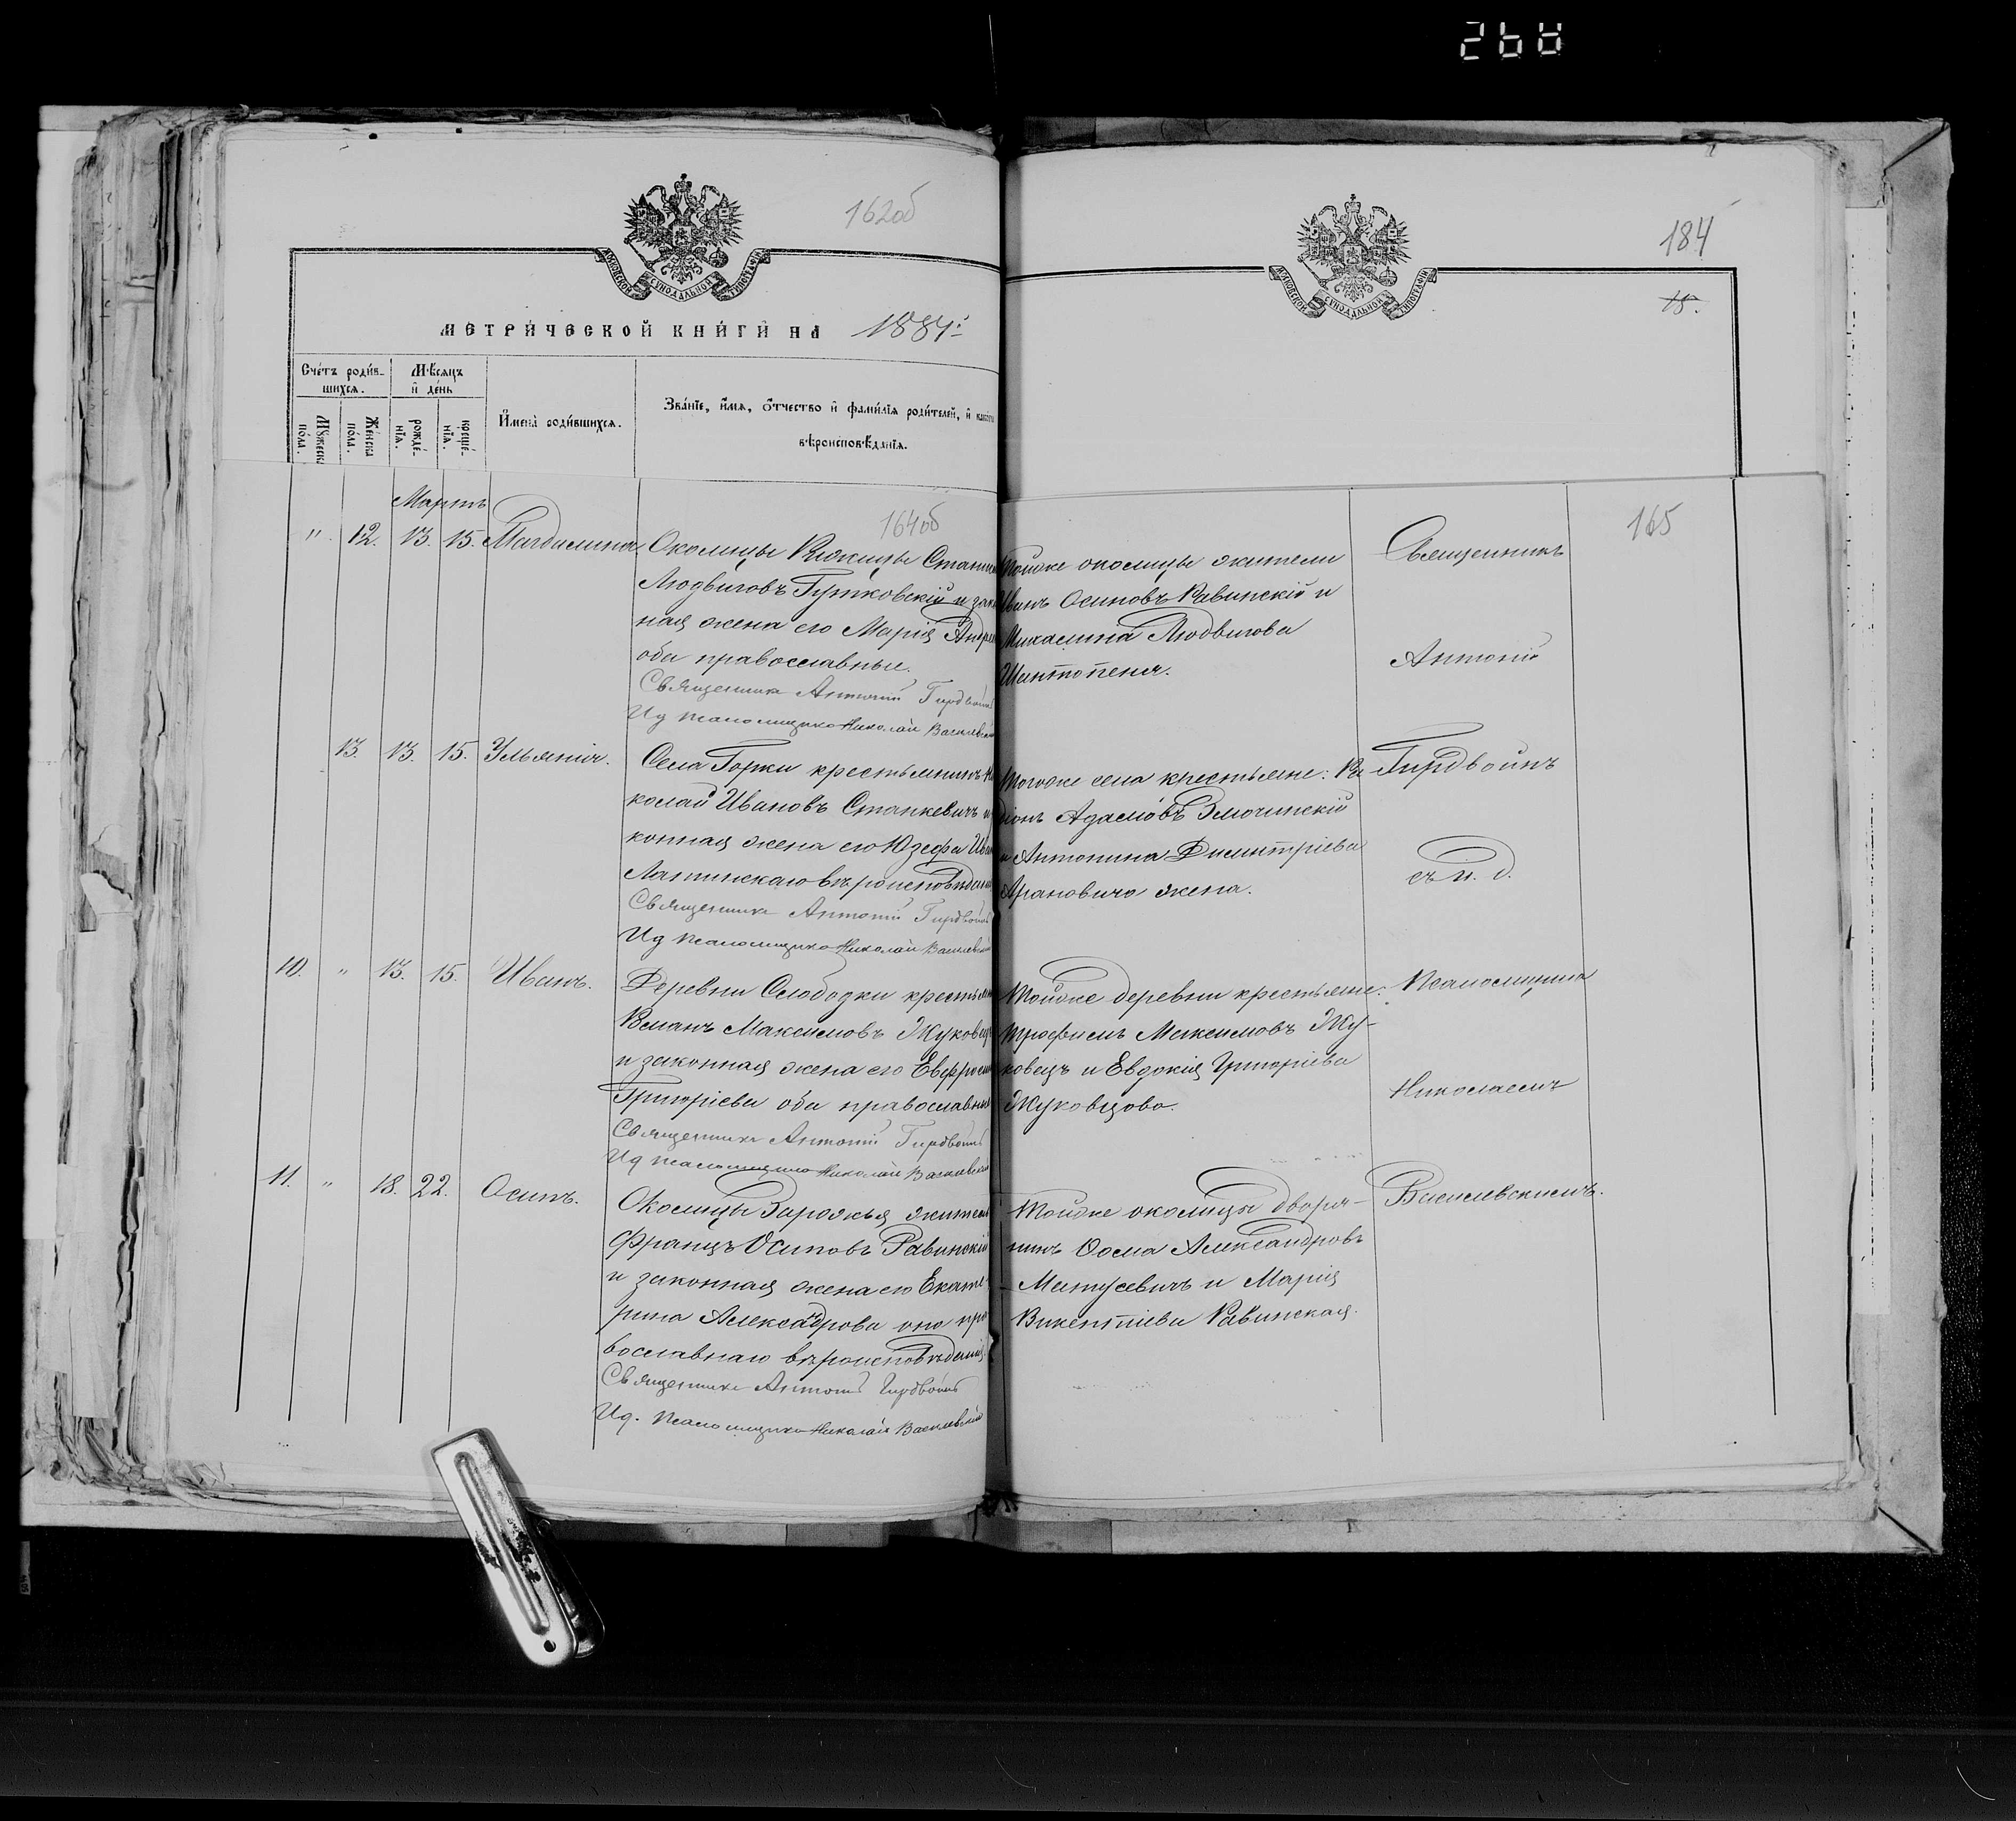 268
162об
184
МОСКОВСКОЙ СѴНОДАЛЬНОЙ ТИПОГРАФІИ
МОСКОВСКОЙ СѴНОДАЛЬНОЙ ТИПОГРАФІИ
15.
МЕТРИ́ЧЕСКОЙ КНИ́ГИ НА 1884:
Сче́тъ роди́в-
шихся.
Мѣсяцъ
и де́нь
Мꙋжеска
по́ла.
Же́нска
по́ла.
рожде́-
нїя.
креще́-
нїя.
И҆мена̀ роди́вшихся.
Зва́нїе, и҆́мя, ѻ҆́тчество и҆ фами́лїя роди́телей, и҆ како́гѡ
вѣроисповѣ́данїя.
164об
165
Мартъ
" 12. 13. 15. Магдалина
Околицы Клюкицы Стани
Людвиговъ Гутковскій и зако
ная жена его Марія Андре
оба православные.
Священникъ Антоній Гирдвоинъ
Ид псаломщика Николай Василевскій
Тойже околицы жители
Иванъ Осиповъ Равинскій и
Михалина Людвигова
Шантопеня.
Священникъ
Антоній
13. 13. 15. Ульянія.
Села Горки крестьянинъ Ни
колай Ивановъ Станкевичъ и
конная жена его Юзефа Ива
Латинскаго вѣроисповѣданія
Священникъ Антоній Гирдвоинъ
Ид псаломщика Николай Василевскій
Тогоже села крестьяне: Ра
діонъ Адамовъ Змочинскій
и Антонина Димитріева
Арановича жена.
Гирдвоинъ
съ и. д.
10. " 13. 15. Иванъ.
Деревни Слободки крестьян
Романъ Максимовъ Жуковецъ
и законная жена его Евфросин
Григоріева оба православные
Священникъ Антоній Гирдвоинъ
Ид псаломщика Николай Василевскій
Тойже деревни крестьяне:
Трофимъ Максимовъ Жу-
ковецъ и Евдокія Григоріева
Жуковцова.
Псаломщика
Николаемъ
11. " 18. 22. Осипъ.
Околицы Зарожья жители
Францъ Осиповъ Равинскій
и законная жена его Екате-
рина Александрова она пра
вославнаго вѣроисповѣданія.
Священникъ Антоній Гирдвоинъ
Ид. псаломщика Николай Василевскій
Тойже околицы дворя-
нинъ Ѳома Александровъ
Матусевичъ и Марія
Викентіева Равинская.
Василевскимъ.